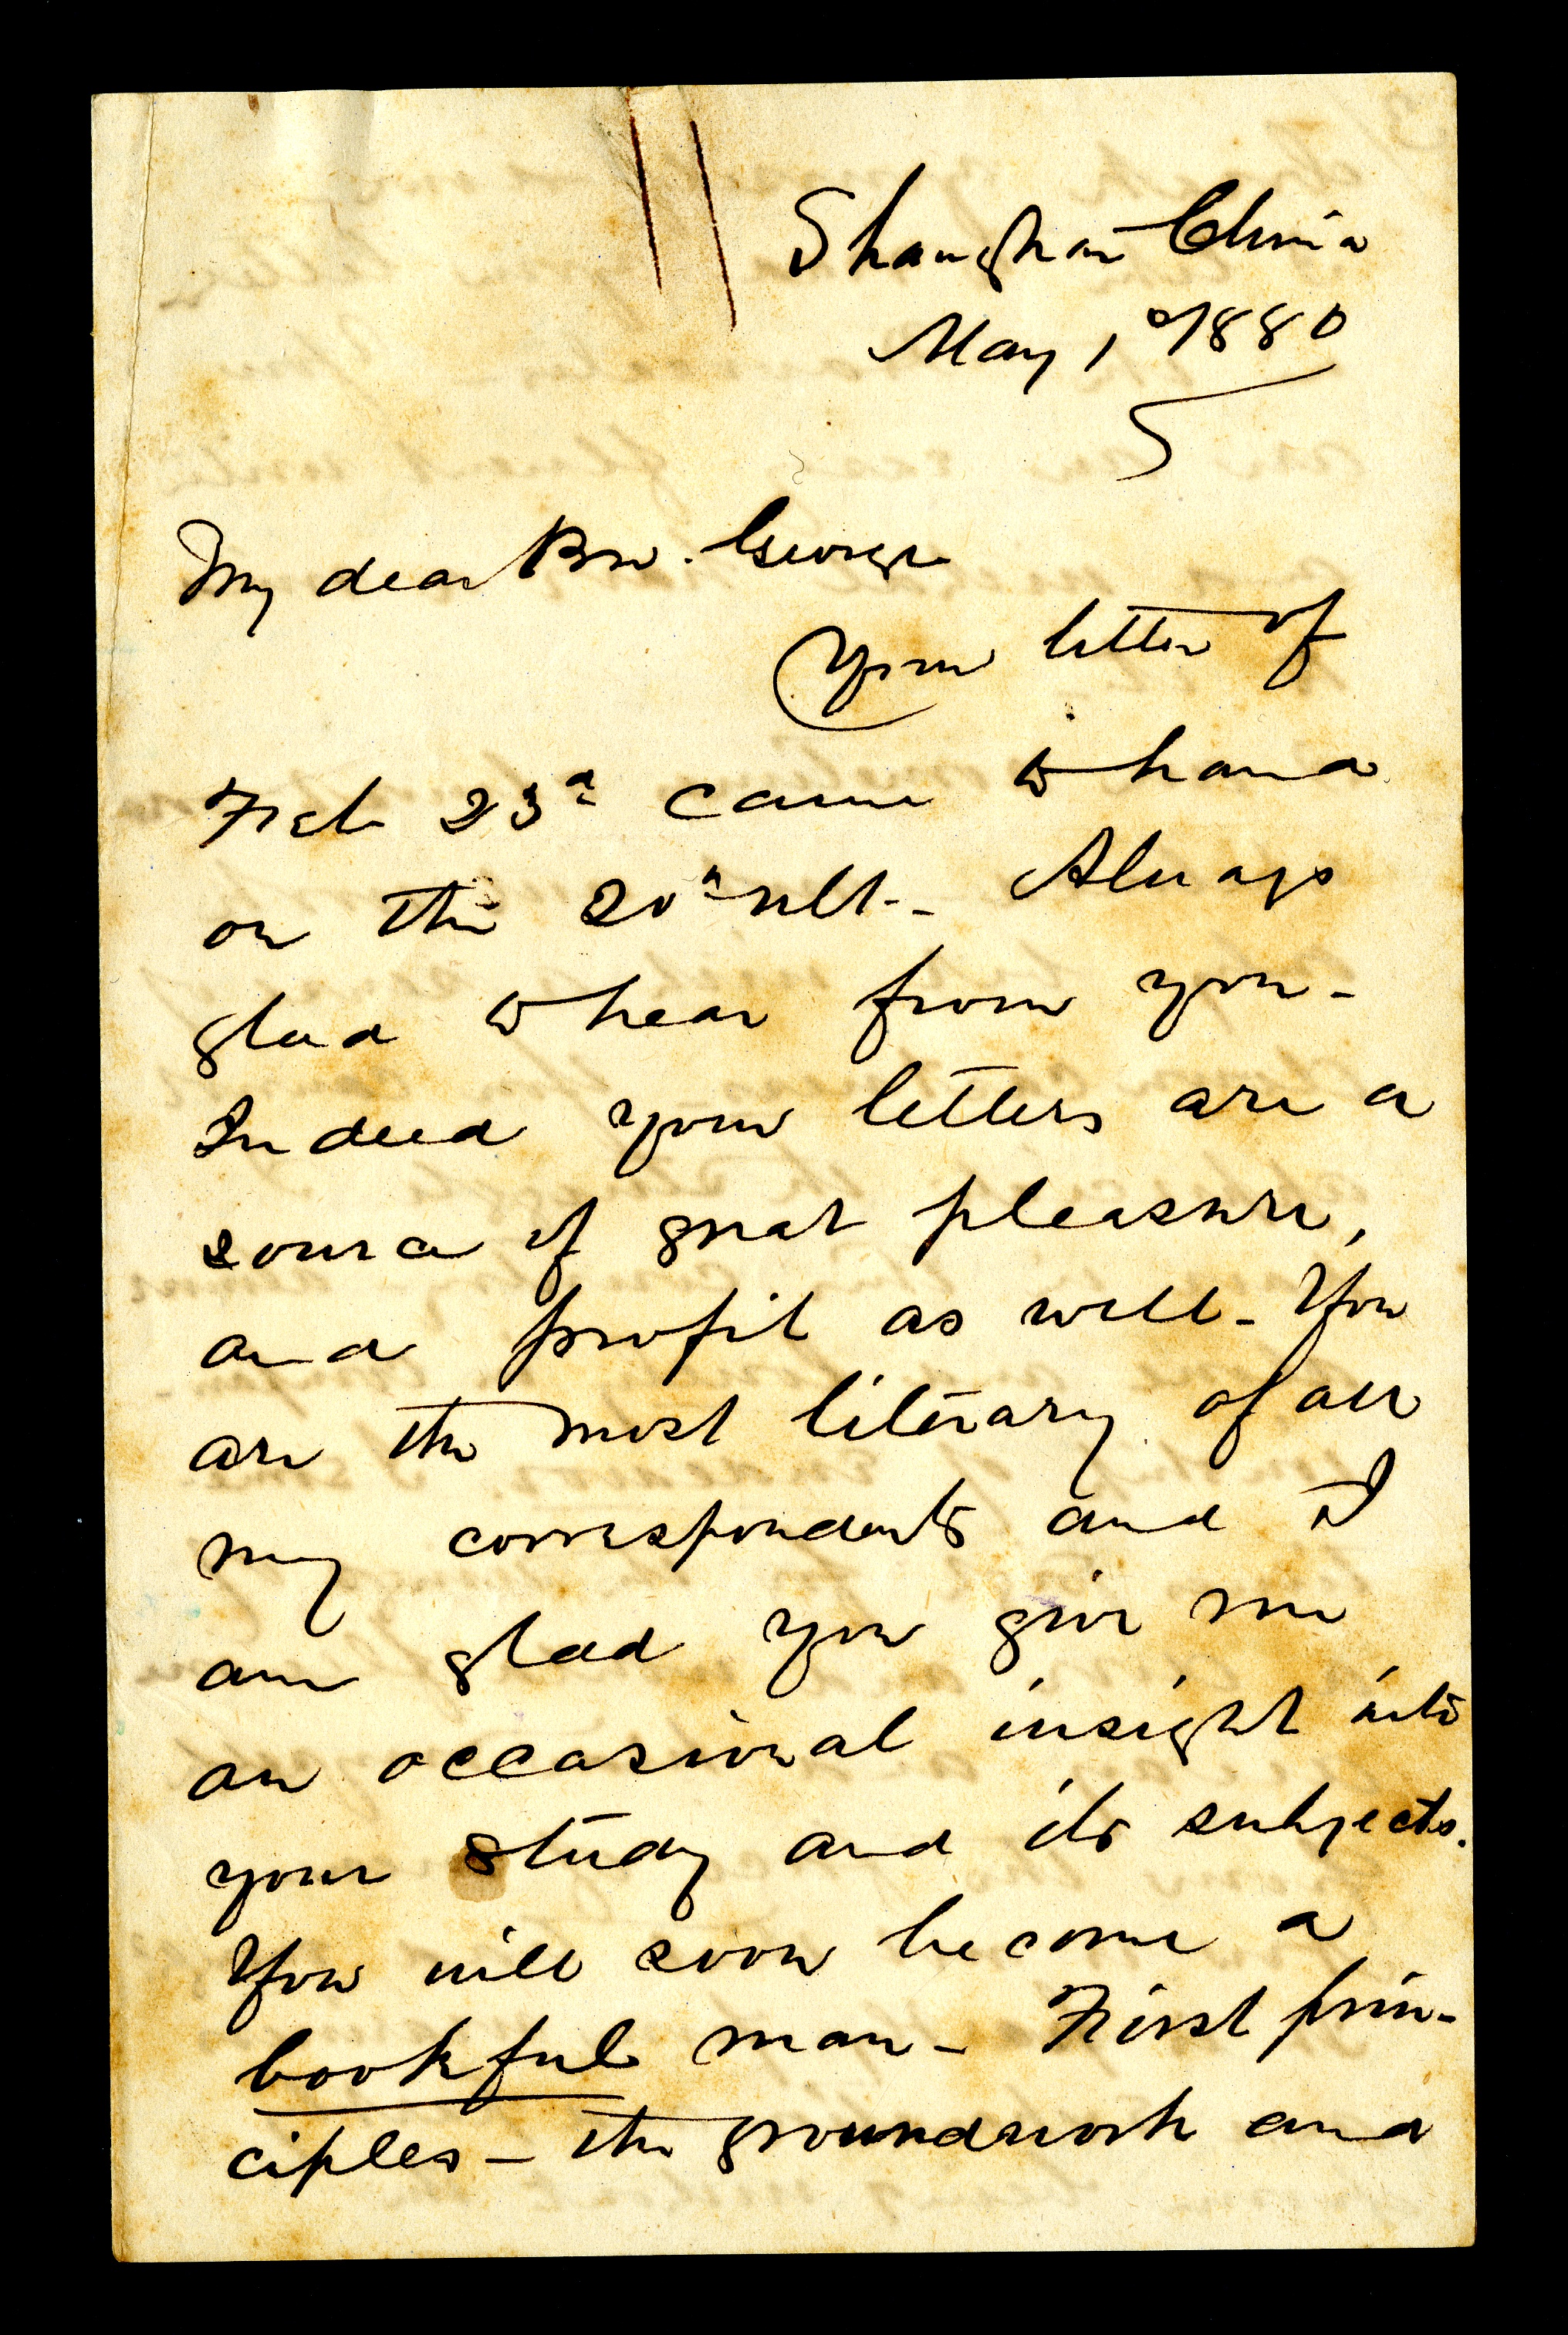 Shanghai China
May 1, 1880
My dear Bro. George
Your letter of
Feb 23d came to hand
on the 20th ult. - Always
glad to hear from you -
Indeed your letters are a
source of great pleasure,
and profit as well - You
are the most literary of all
my correspondents and I
am glad you give me
an occasional insight into
your study and its subjects.
You will soon become a
bookful man - First prin-
ciples - the groundwork and